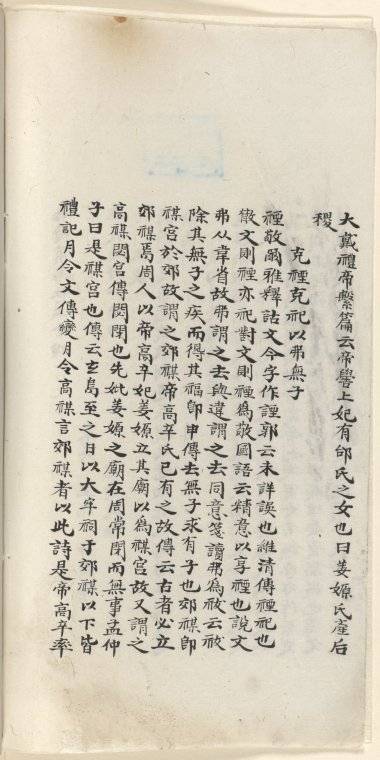 大戴禮帝繫篇云帝嚳上妃有邰氏之女也曰姜嫄氏產后
稷
克禋克祀以弗無子
禋敬爾雅釋詁文今字作諲郭云未詳誤也維清傳禋祀也
散文則禋亦祀對文則禋為敬國語云精意以享禋也說文
弗从韋省故弗謂之去與違謂之去同意箋讀弗為祓云祓
除其無子之疾而得其福卽申傳去無子求有子也郊禖卽
禖宮於郊故謂之郊禖帝高辛氏已有之故傳云古者必立
郊禖焉周人以帝高辛妃姜嫄立其廟以為禖宮故又謂之
高禖閟宮傳閟閉也先妣姜嫄之廟在周常閉而無事孟仲
子曰是禖宮也傳云玄鳥至之日以大牢祠于郊禖以下皆
禮記月令文傳變月令高禖言郊禖者以此詩是帝高辛率